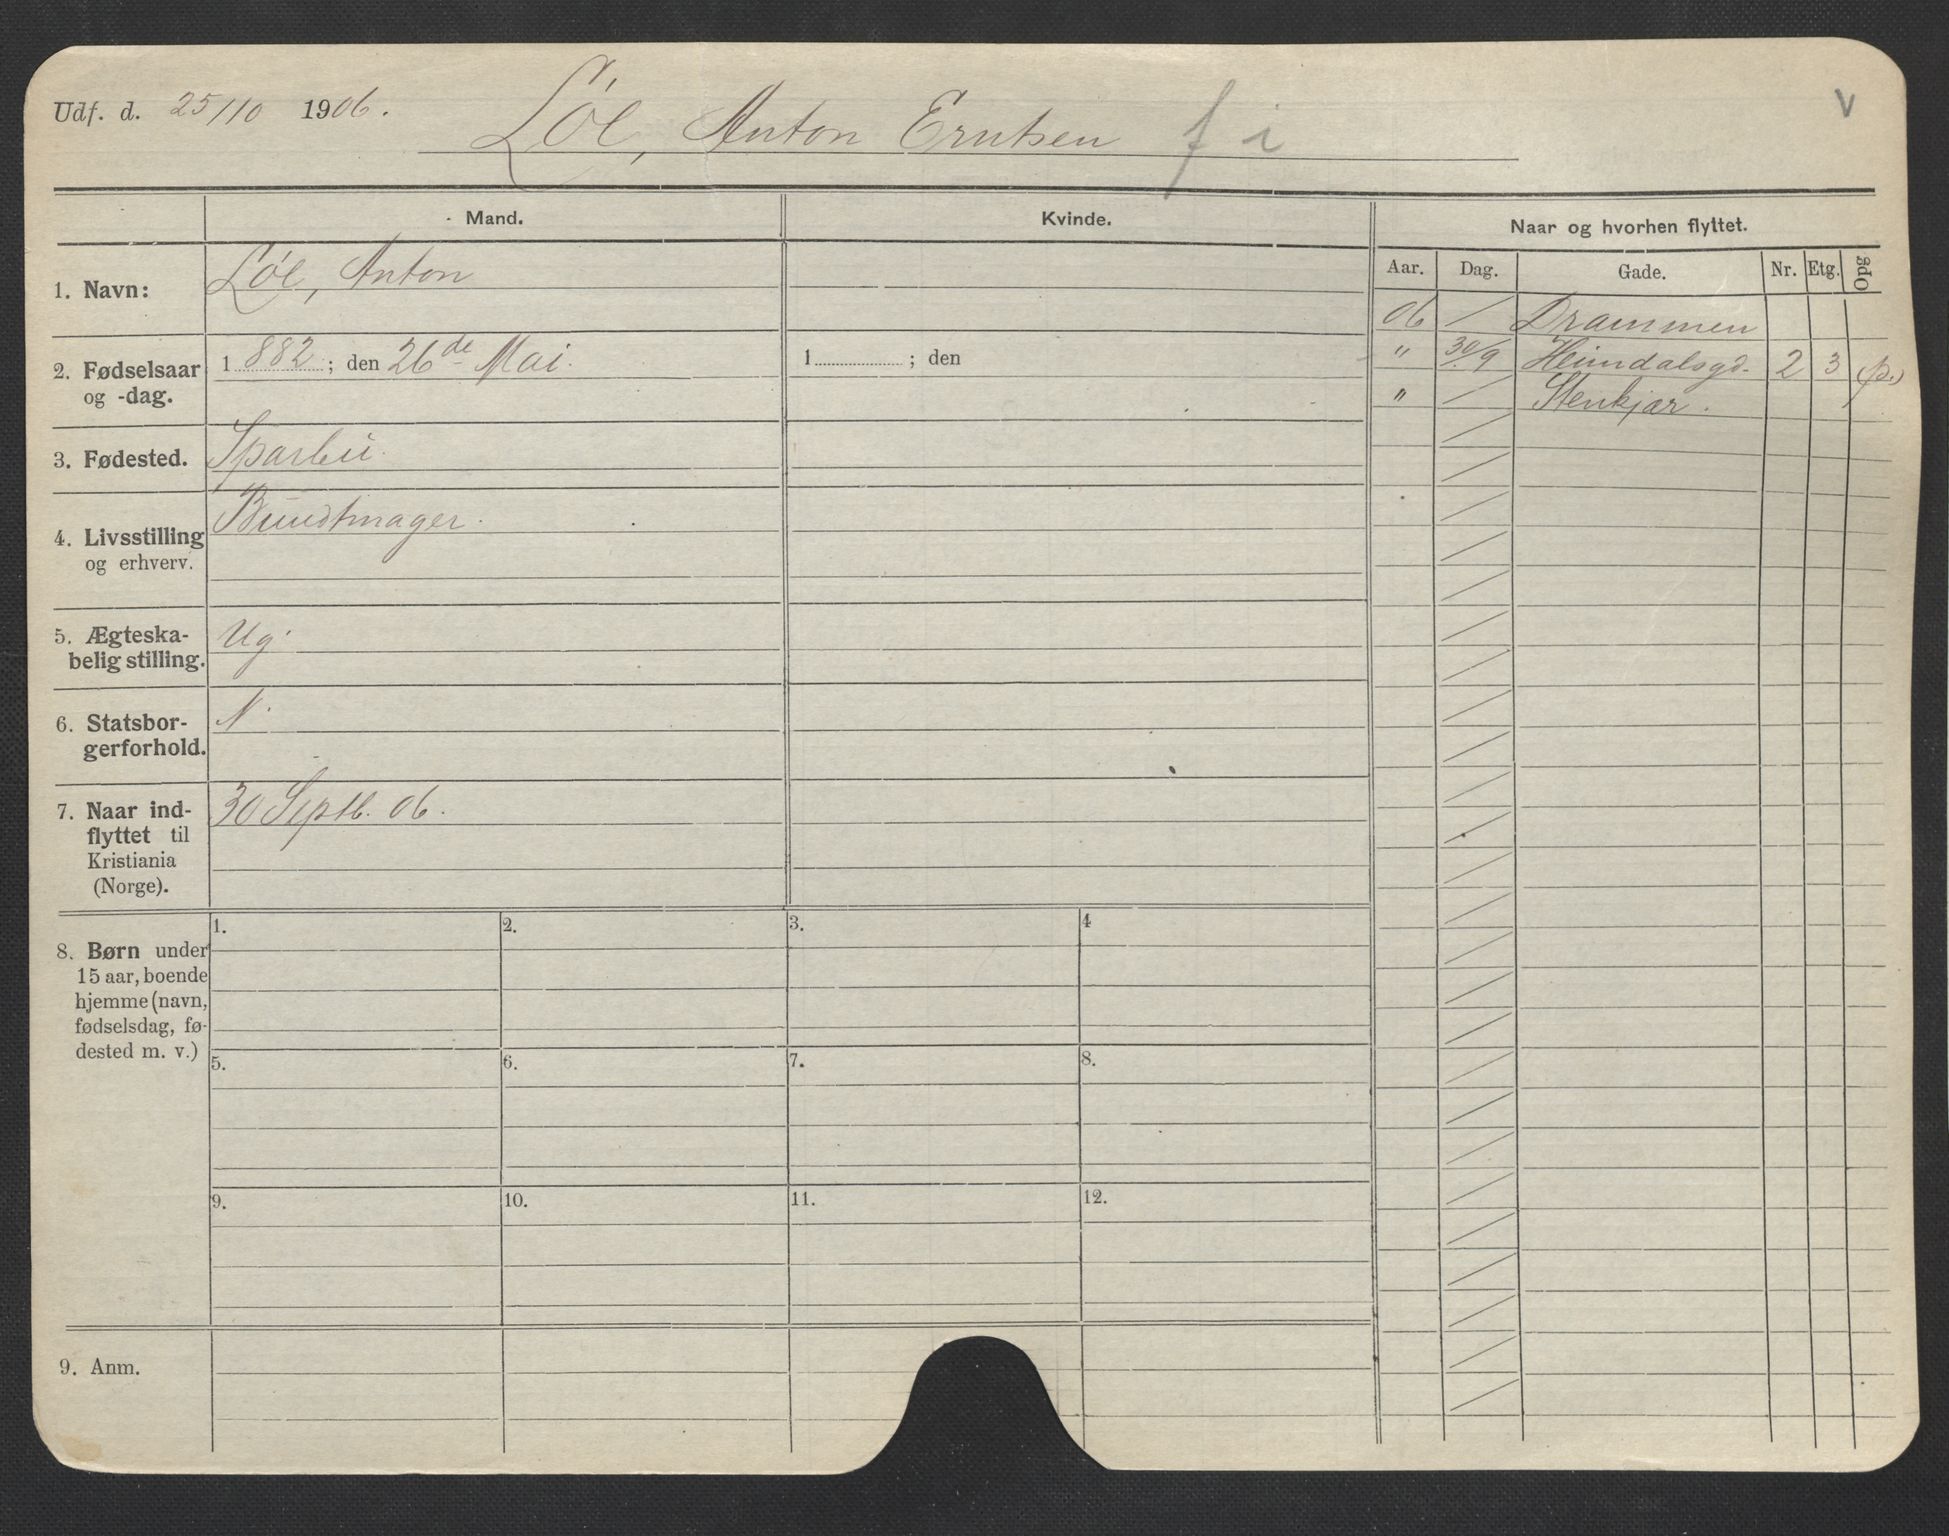 Udf. d. 25/10 1906.
Løe, Anton Erntsen f i
v
Mand.
Kvinde.
1. Navn:
Løe, Anton
2. Fødselsaar
og -dag.
1882; den 26de Mai.
1 ; den
3. Fødested.
Sparbu.
4. Livsstilling
og erhverv.
Bundtmager.
5. Ægteska-
belig stilling.
Ug.
6. Statsbor-
gerforhold.
N.
7. Naar ind-
flyttet til
Kristiania
(Norge).
30 Septb. 06.
8. Børn under
15 aar, boende
hjemme (navn,
fødselsdag, fø-
dested m. v.)
1. 2. 3. 4
5. 6. 7. 8.
9. 10. 11. 12.
9. Anm.
Naar og hvorhen flyttet.
Aar. Dag. Gade. Nr. Etg. Opg
06 / Drammen
" 30/9 Heimdalsgd. 2 3 (p.)
" / Stenkjær.